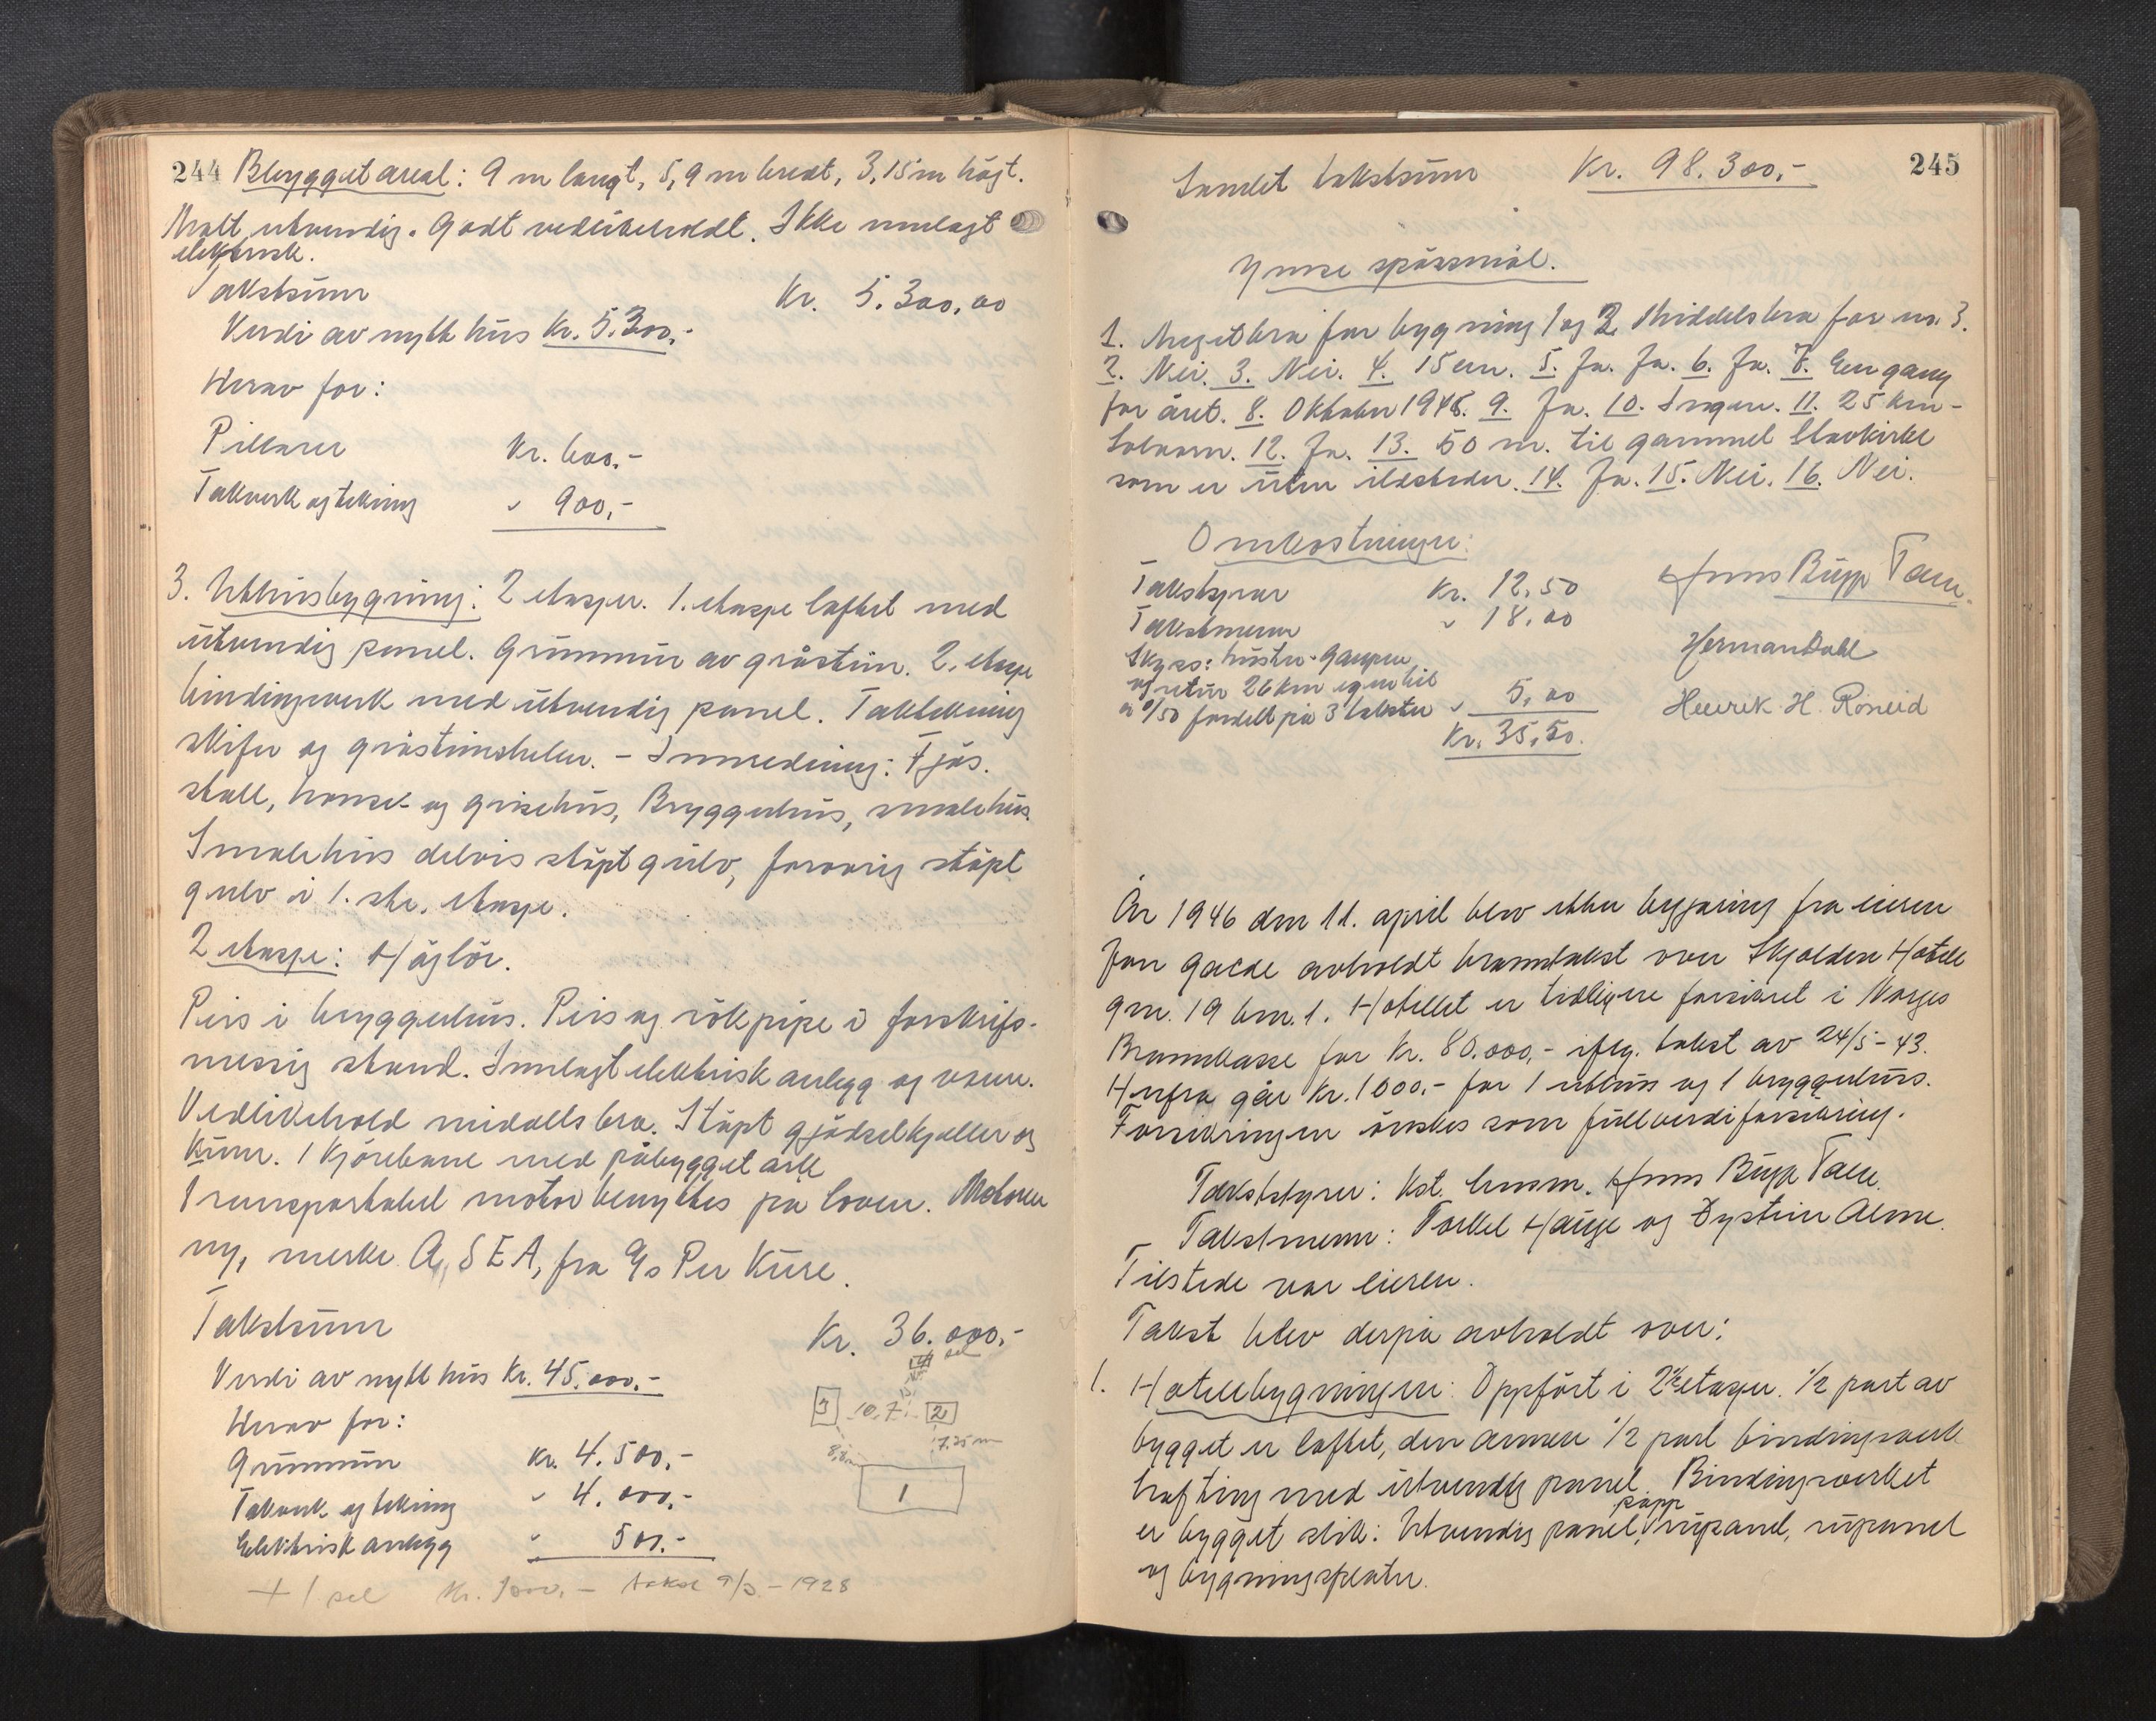 244 Bbygget areal: 9 m langt, 5,9 m bredt, 3,15 m högt.
Malt utvendig. Godt vedlikeholdt. Ikke innlagt
elektrisk.
Takstsum Kr. 5.300,00
Verdi av nytt hus Kr. 5.300,-
Herav for:
Pillarer Kr. 600,-
Takverk og tekning " 900,-
3. Uthusbygning: 2 etasjer. 1. etasje laftet med
utvendig panel. Grunnmur av gråstein. 2. etasje
bindingsverk med utvendig panel. Taktekning
skifer og gråsteinsheller. - Innredning: Fjös.
stall, hönse- og grisehus, Bryggerhus, smalehus.
Smalehus delvis stöpt gulv, forövrig stöpt
gulv i 1.ste. etasje.
2 etasje: Höglör.
Peis i bryggerhus. Peis og rökpipe i forskrifs-
messig stand. Innlagt elektrisk anlegg og vann.
Vedlikehold middells bra. Stöpt gjödselkjeller og
Kum. 1 Kjörebane med påbygget ark
Transportabel motor benyttes på loven. Motoren
ny, merke A.S E A, fra A/s Per Kure.
Takstsum Kr. 36.000,-
Verdi av nytt hus Kr. 45.000,-
Herav for:
Grunnmur Kr. 4.500,-
Takverk og tekning " 4.000,-
Elektrisk anlegg " 500,-
4 sel
3 10,7 2
8,8m 7,25 m
1
+ 1 sel Kr. 1000,- takst 9/3 - 1928
245
Samlet takstsum Kr. 98.300,-
Ymse spörsmål.
1. Meget bra for bygning 1 og 2. Middels bra for nr. 3.
2. Nei. 3. Nei. 4. 15 cm. 5. Ja. Ja. 6. Ja. 7. En gang
for året. 8. Oktober 1945. 9. Ja. 10. Ingen. 11. 25 km -
Solvorn. 12. Ja. 13. 50 m. til gammel Stavkirke
som er uten ildsteder. 14. Ja. 15. Nei. 16. Nei.
Omkostninger:
Takstyrer Kr. 12,50
Takstmenn " 18,00
Skyss: - Gaupne
og retur 26 km egen bil
a 0/50 fordelt på 3 takster " 5,00
Kr. 35,50.
Hans Bugge Tane.
Herman Dahl
Henrik H. Röneid
År 1946 den 11. april blev etter begjæring fra eieren
Jon Gaede avholdt branntakst over Skjolden Hotell
gnr. 19 bnr. 1. Hotellet er tidligere forsikret i Norges
Brannkasse for Kr. 80.000,- iflg. takst av 24/5 - 43.
Herfra går Kr. 1000,- for 1 uthus og 1 bryggerhus.
Forsikringen önskes som fullverdiforsikring.
Takstyrer: Kst. lensm. Hans Bugge Tane.
Takstmenn: Torkel Hauge og Öystein Alme.
Tilstede var eieren.
Takst blev derpå avholdt over:
1. Hotellbygningen: Oppfört i 2½ etasjer. 1/2 part av
bygget er laftet, den annen 1/2 part bindingsverk
trafting med utvendig panel. Bindingsverket
er bygget slik: Utvendig panel, papp rupanel, rupanel
og bygningsplater.